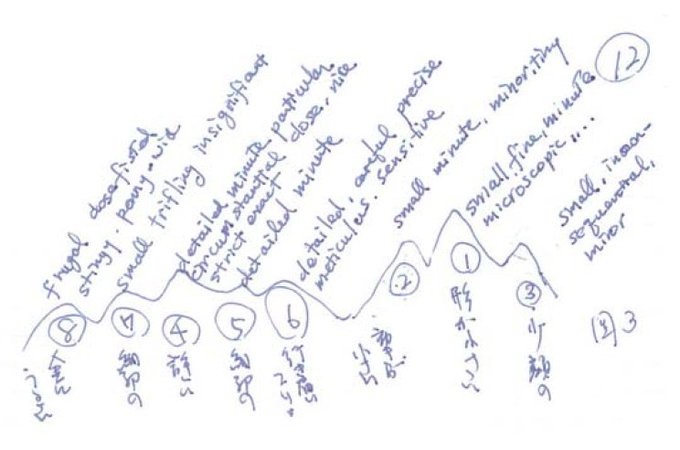 12
frugal closefisted
stingy. penny-wise
small trifling insignificant
detailed minute particular
circumstantial close, nice
strict exact
detailed minute
detailed, careful precise
meticulous. sensitive
small minute, minor, tiny
small, fine, minute
microscopic ....
small, incon-
sequential,
minor
8
7
4
5
6
2
1
3
細部の
詳しい
細部の
行き届いた
形が小さい
少額の
図3